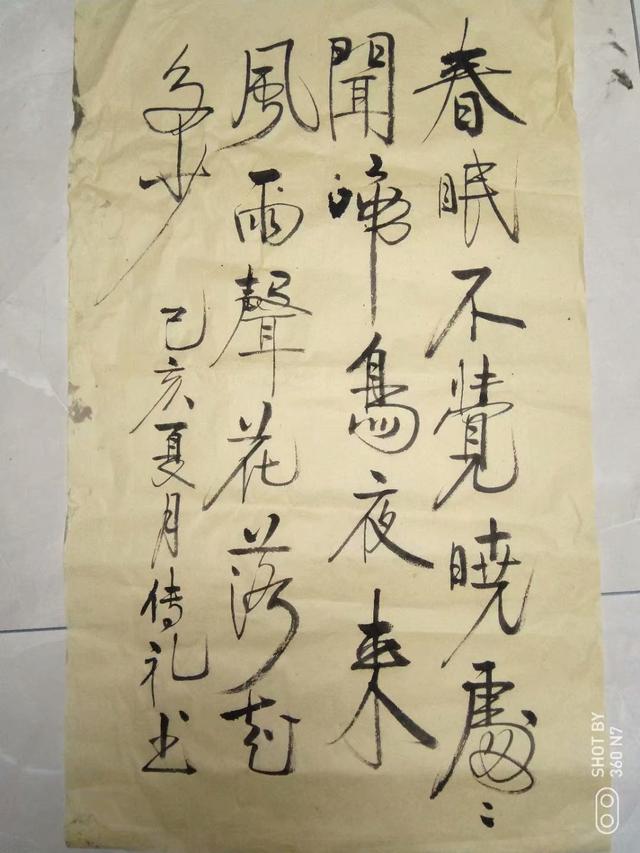 春眠不覺曉處〻
聞啼鳥夜來
風雨聲花落知
多少
己亥夏月传礼书
SHOT BY
360 N7